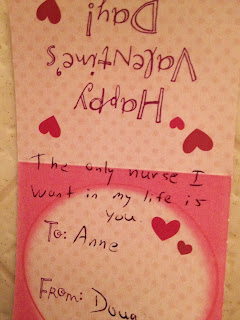 Happy
Valentine's
Day!
The only nurse I
want in my life is
you.
To: Anne
From: Doug